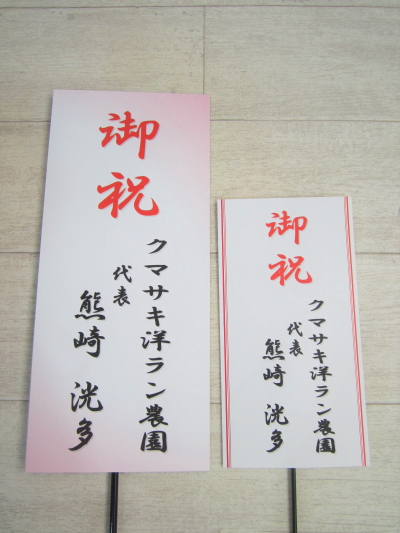 御祝
クマサキ洋ラン農園
代表
熊崎 洸多
御祝
クマサキ洋ラン農園
代表
熊崎 洸多